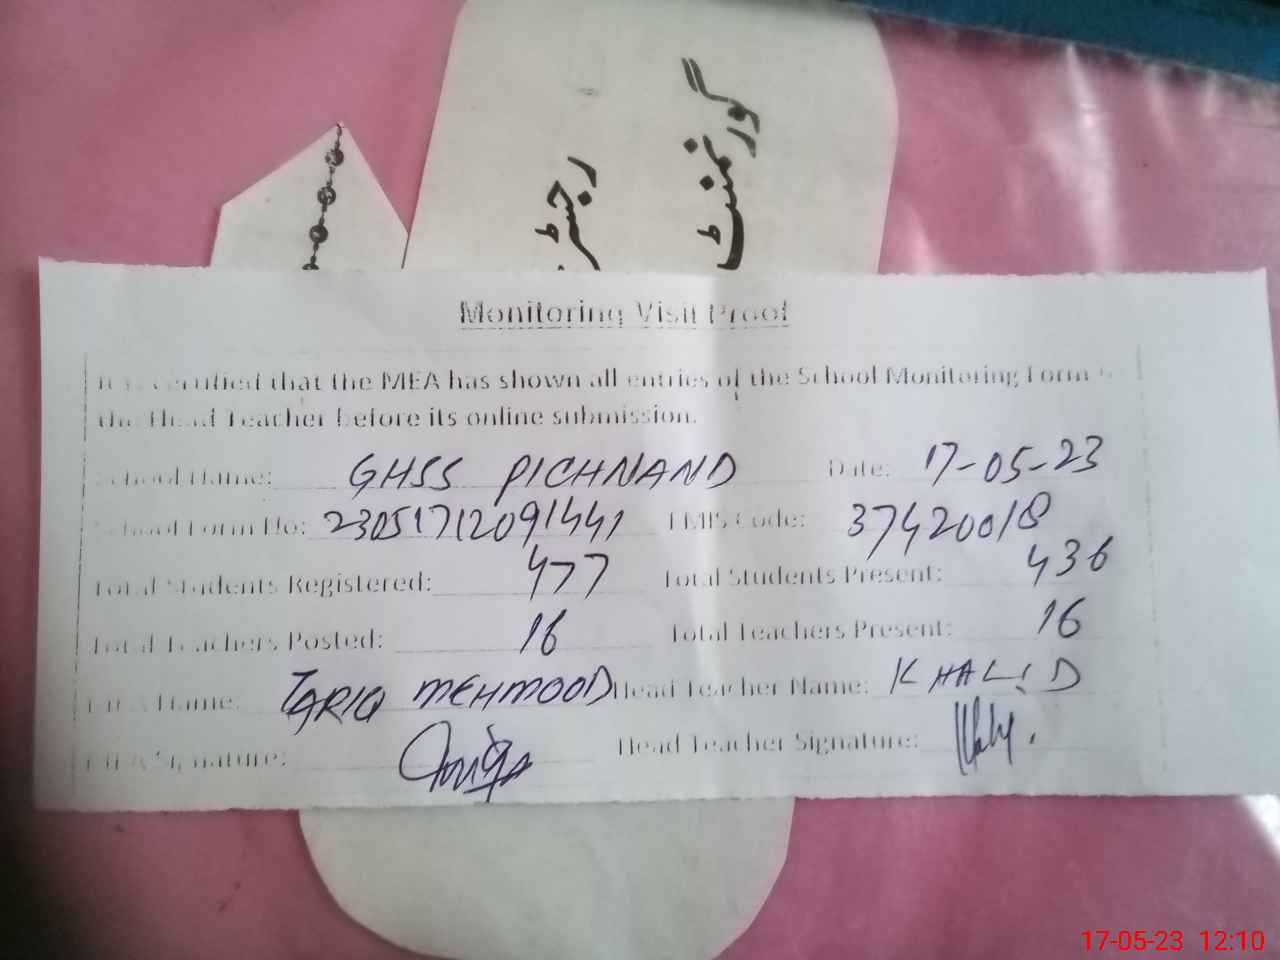 گورنمنٹ
رجسٹر
Monitoring Visit Proof
It is certified that the MEA has shown all entries of the School Monitoring Form to
the Head Teacher before its online submission.
School Name: GHSS PICHNAND Date: 17-05-23
School Form No: 23051712091441 EMIS Code: 37420018
Total Students Registered: 477 Total Students Present: 436
Total Teachers Posted: 16 Total Teachers Present: 16
MEA Name: TARIQ MEHMOOD Head Teacher Name: KHALID
MEA Signature: Head Teacher Signature:
17-05-23 12:10